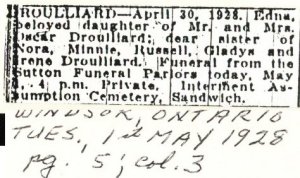 DROUILLIARD—April 30, 1928. Edna,
beloved daughter of Mr. and Mrs.
Oscar Drouilliard; dear sister of
Nora, Minnie, Russell, Gladys and
Irene Drouilliard. Funeral from the
Sutton Funeral Parlors today, May
4 p.m. Private. Interment As-
sumption Cemetery, Sandwich.
WINDSOR, ONTARIO
TUES, 1st MAY 1928
pg. 5; col. 3